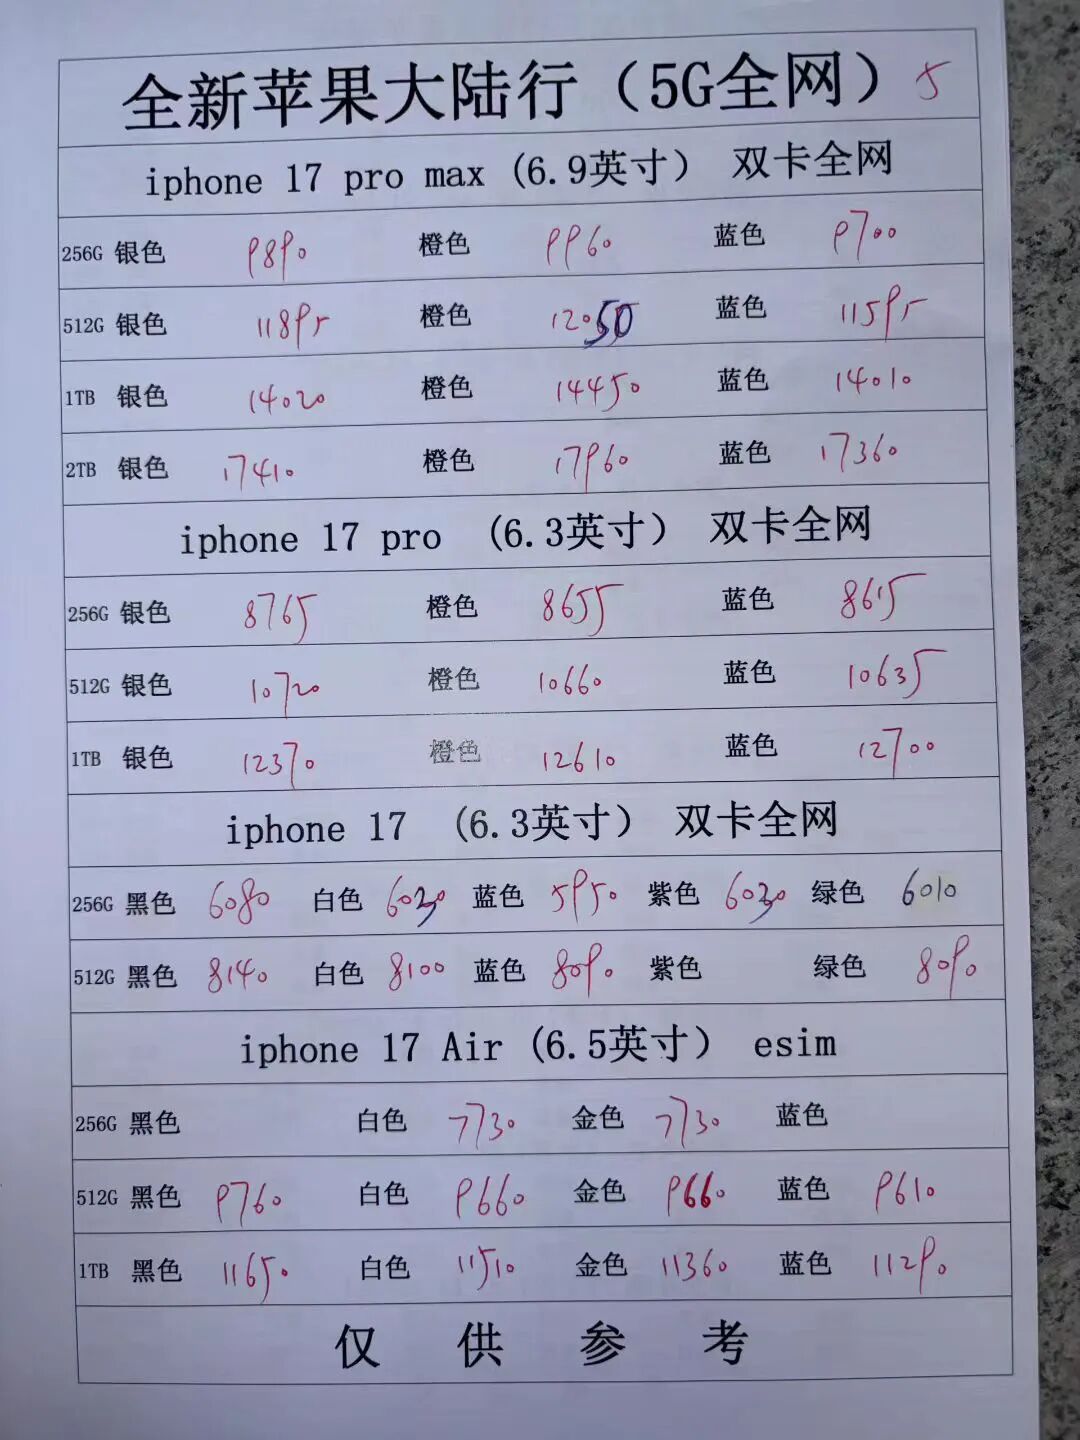 全新苹果大陆行（5G全网） 5
iphone 17 pro max (6.9英寸） 双卡全网
256G 银色 9890 橙色 9960 蓝色 9700
512G 银色 11895 橙色 12050 蓝色 11595
1TB 银色 14020 橙色 14450 蓝色 14010
2TB 银色 17410 橙色 17960 蓝色 17360
iphone 17 pro (6.3英寸） 双卡全网
256G 银色 8765 橙色 8655 蓝色 8615
512G 银色 10720 橙色 10660 蓝色 10635
1TB 银色 12370 橙色 12610 蓝色 12700
iphone 17 (6.3英寸） 双卡全网
256G 黑色 6080 白色 6030 蓝色 5950 紫色 6030 绿色 6010
512G 黑色 8140 白色 8100 蓝色 8090 紫色 绿色 8090
iphone 17 Air (6.5英寸） esim
256G 黑色 白色 7730 金色 7730 蓝色
512G 黑色 9760 白色 9660 金色 9660 蓝色 9610
1TB 黑色 11650 白色 11510 金色 11360 蓝色 11290
仅供参考